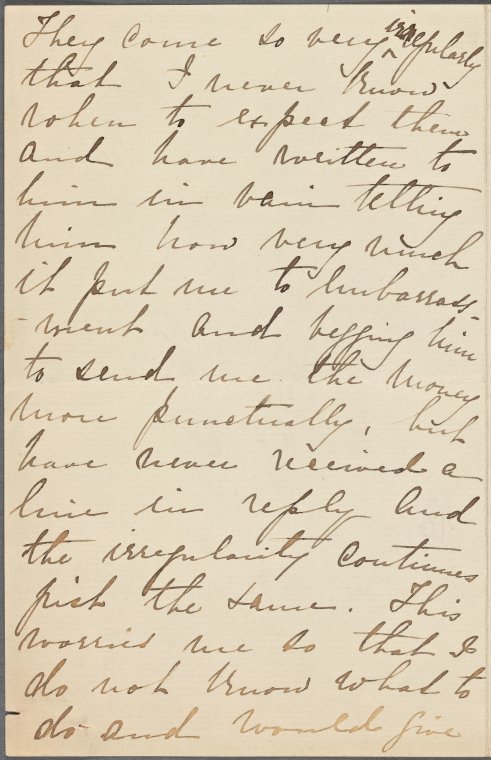 They come so very irregularly
that I never know
when to expect them
and have written to
him in vain telling
him how very much
it put me to embarrass-
-ment and begging him
to send me the money
more punctually, but
have never received a
line in reply and
the irregularity continues
just the same. This
worries me so that I
do not know what to
do and would give